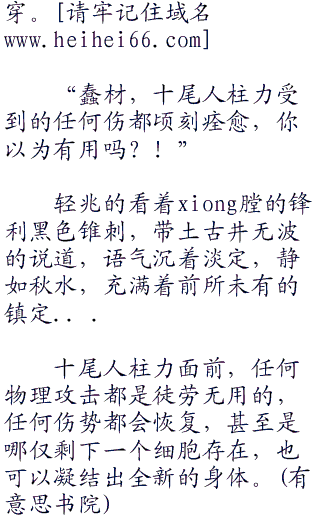 穿。[请牢记住域名
www.heihei66.com]
“蠢材，十尾人柱力受
到的任何伤都顷刻痊愈，你
以为有用吗？！”
轻兆的看着xiong膛的锋
利黑色锥刺，带土古井无波
的说道，语气沉着淡定，静
如秋水，充满着前所未有的
镇定...
十尾人柱力面前，任何
物理攻击都是徒劳无用的，
任何伤势都会恢复，甚至是
哪仅剩下一个细胞存在，也
可以凝结出全新的身体。(有
意思书院)